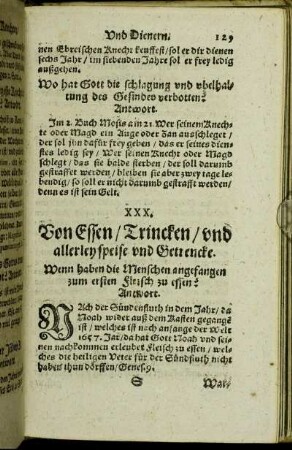 Vnd Dienern. 129
nen Ebreischen Knecht keuffest/ sol er dir dienen
sechs Jahr/ im siebenden Jahre sol er frey ledig
außgehen.
Wo hat Gott die schlagung vnd vbelhal-
tung des Gesindes verbotten?
Antwort.
Im 2. Buch Mosis am 21. Wer seinem Knech-
te oder Magd ein Auge oder Zan ausschleget/
der sol ihn dafür frey geben/ das er seines dien-
stes ledig sey/ Wer seinen Knecht oder Magd
schlegt/ das sie bald sterben/ der soll darumb
gestraffet werden/ bleiben sie aber zwey tage le-
bendig/ so soll er nicht darumb gestrafft werden/
denn es ist sein Gelt.
XXX.
Von Essen/ Trincken/ vnd
allerley speise vnd Getrencke.
Wenn haben die Menschen angefangen
zum ersten Fleisch zu essen?
Antwort.
NAch der Sündenfluth in dem Jahr/ da
Noah wider auß dem Kasten gegangē
ist/ welches ist nach anfange der Welt
1657. Jar/ da hat Gott Noah vnd sei-
nen nachkommen erleubet Fleisch zu essen/ wel-
ches die heiligen Veter für der Sündfluth nicht
haben thun dörffen/ Genes. 9.
S War-